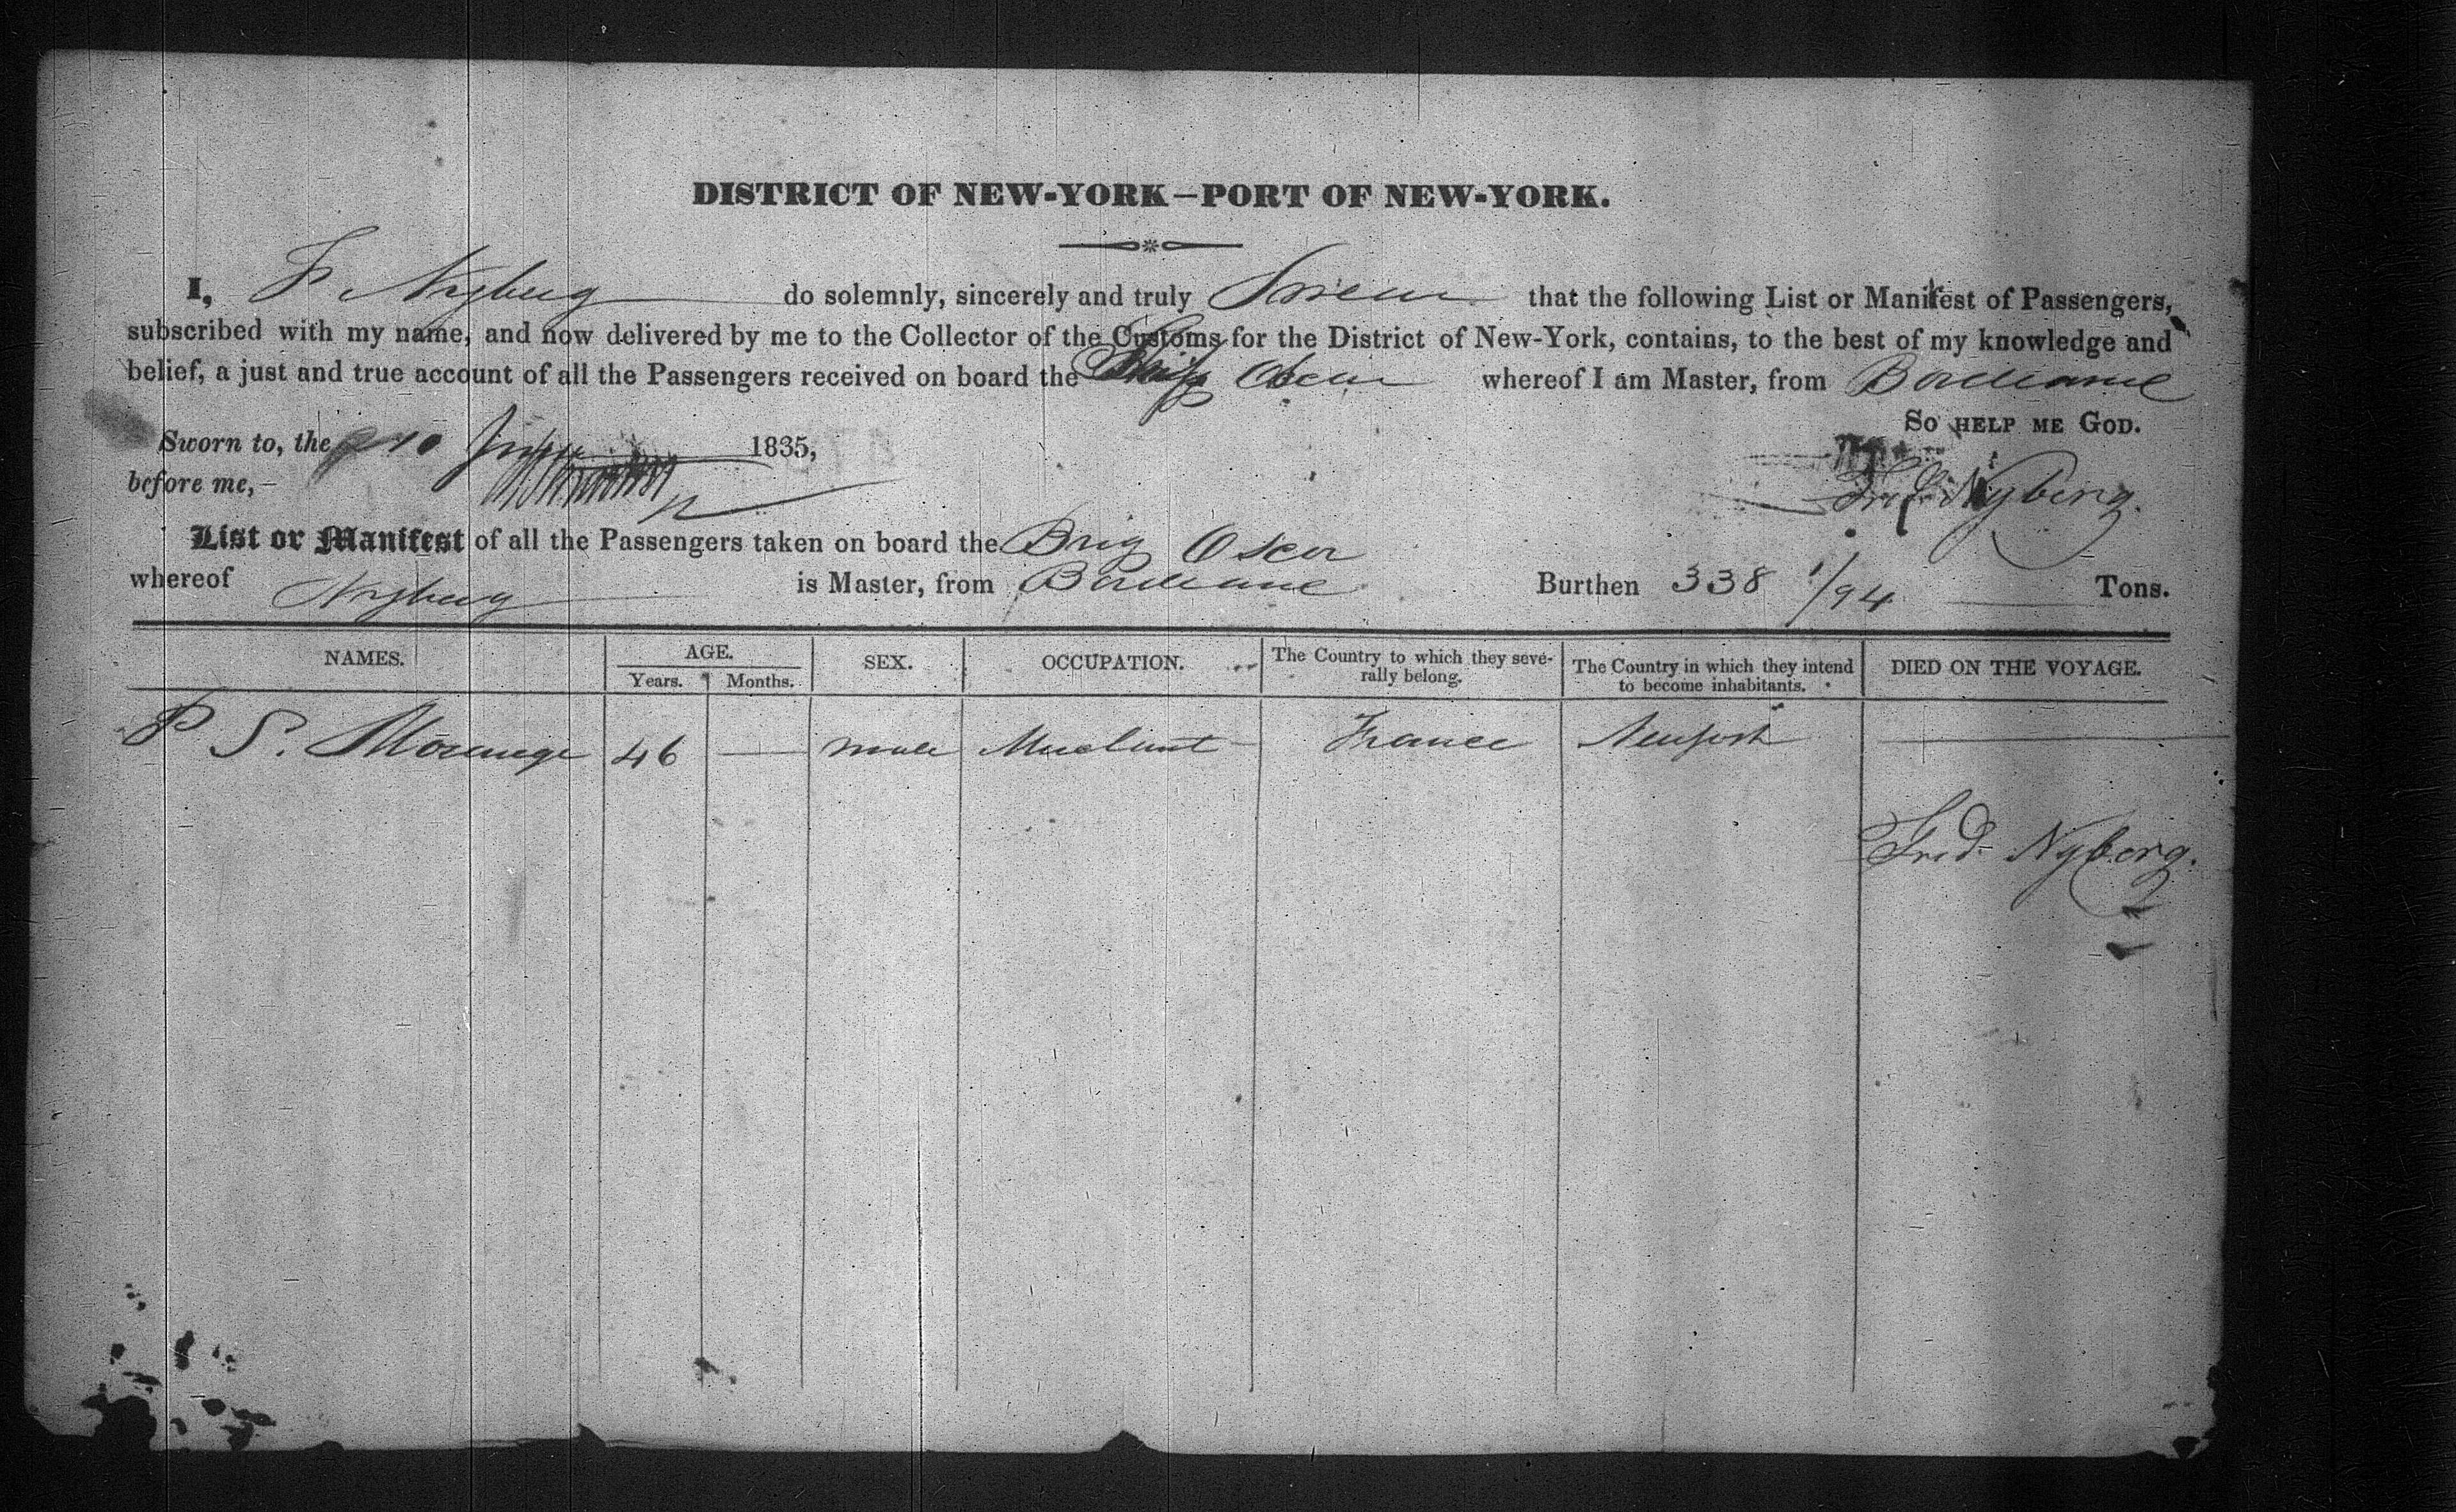 DISTRICT OF NEW-YORK—PORT OF NEW-YORK.
I, F. Nyberg do solemnly, sincerely and truly Swear that the following List or Manifest of Passengers,
subscribed with my name, and now delivered by me to the Collector of the Customs for the District of New-York, contains, to the best of my knowledge and
belief, a just and true account of all the Passengers received on board the Brig Oscar whereof I am Master, from Bordeaux
So HELP ME GOD.
Sworn to, the 1835,
before me,
Fred Nyberg.
List or Manifest of all the Passengers taken on board the Brig Oscar
whereof Nyberg is Master, from Bordeaux Burthen 338 1/94 Tons.
NAMES. AGE. Years. Months. SEX. OCCUPATION. The Country to which they severally belong. The Country in which they intend to become inhabitants. DIED ON THE VOYAGE.
P S. 46 — male Merchant France New York
Fred Nyberg.